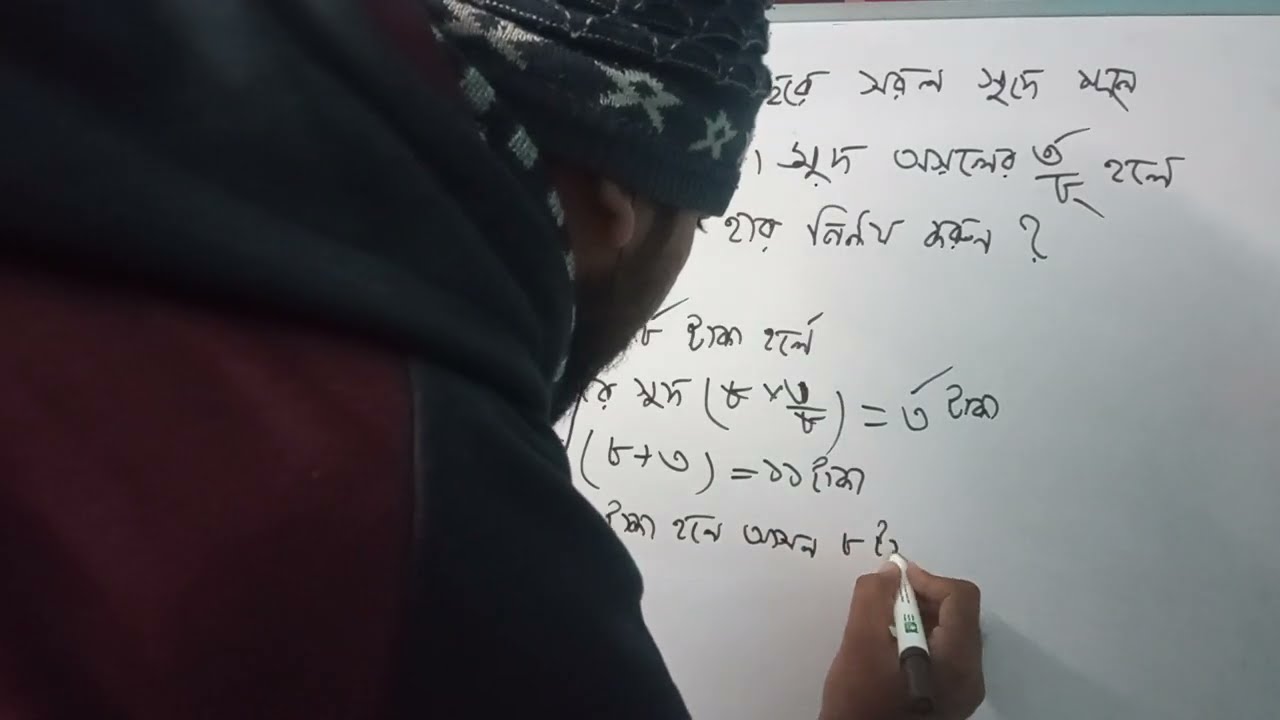 ছরে সরল সুদে মূল
। সুদ আসলের ৩/৮ হলে
হার নির্নয় করুন ?
৮ টাকা হলে
র সুদ (৮ × ৩/৮) = ৩ টাকা
(৮+৩) = ১১ টাকা
টাকা হলে আসল ৮ টা